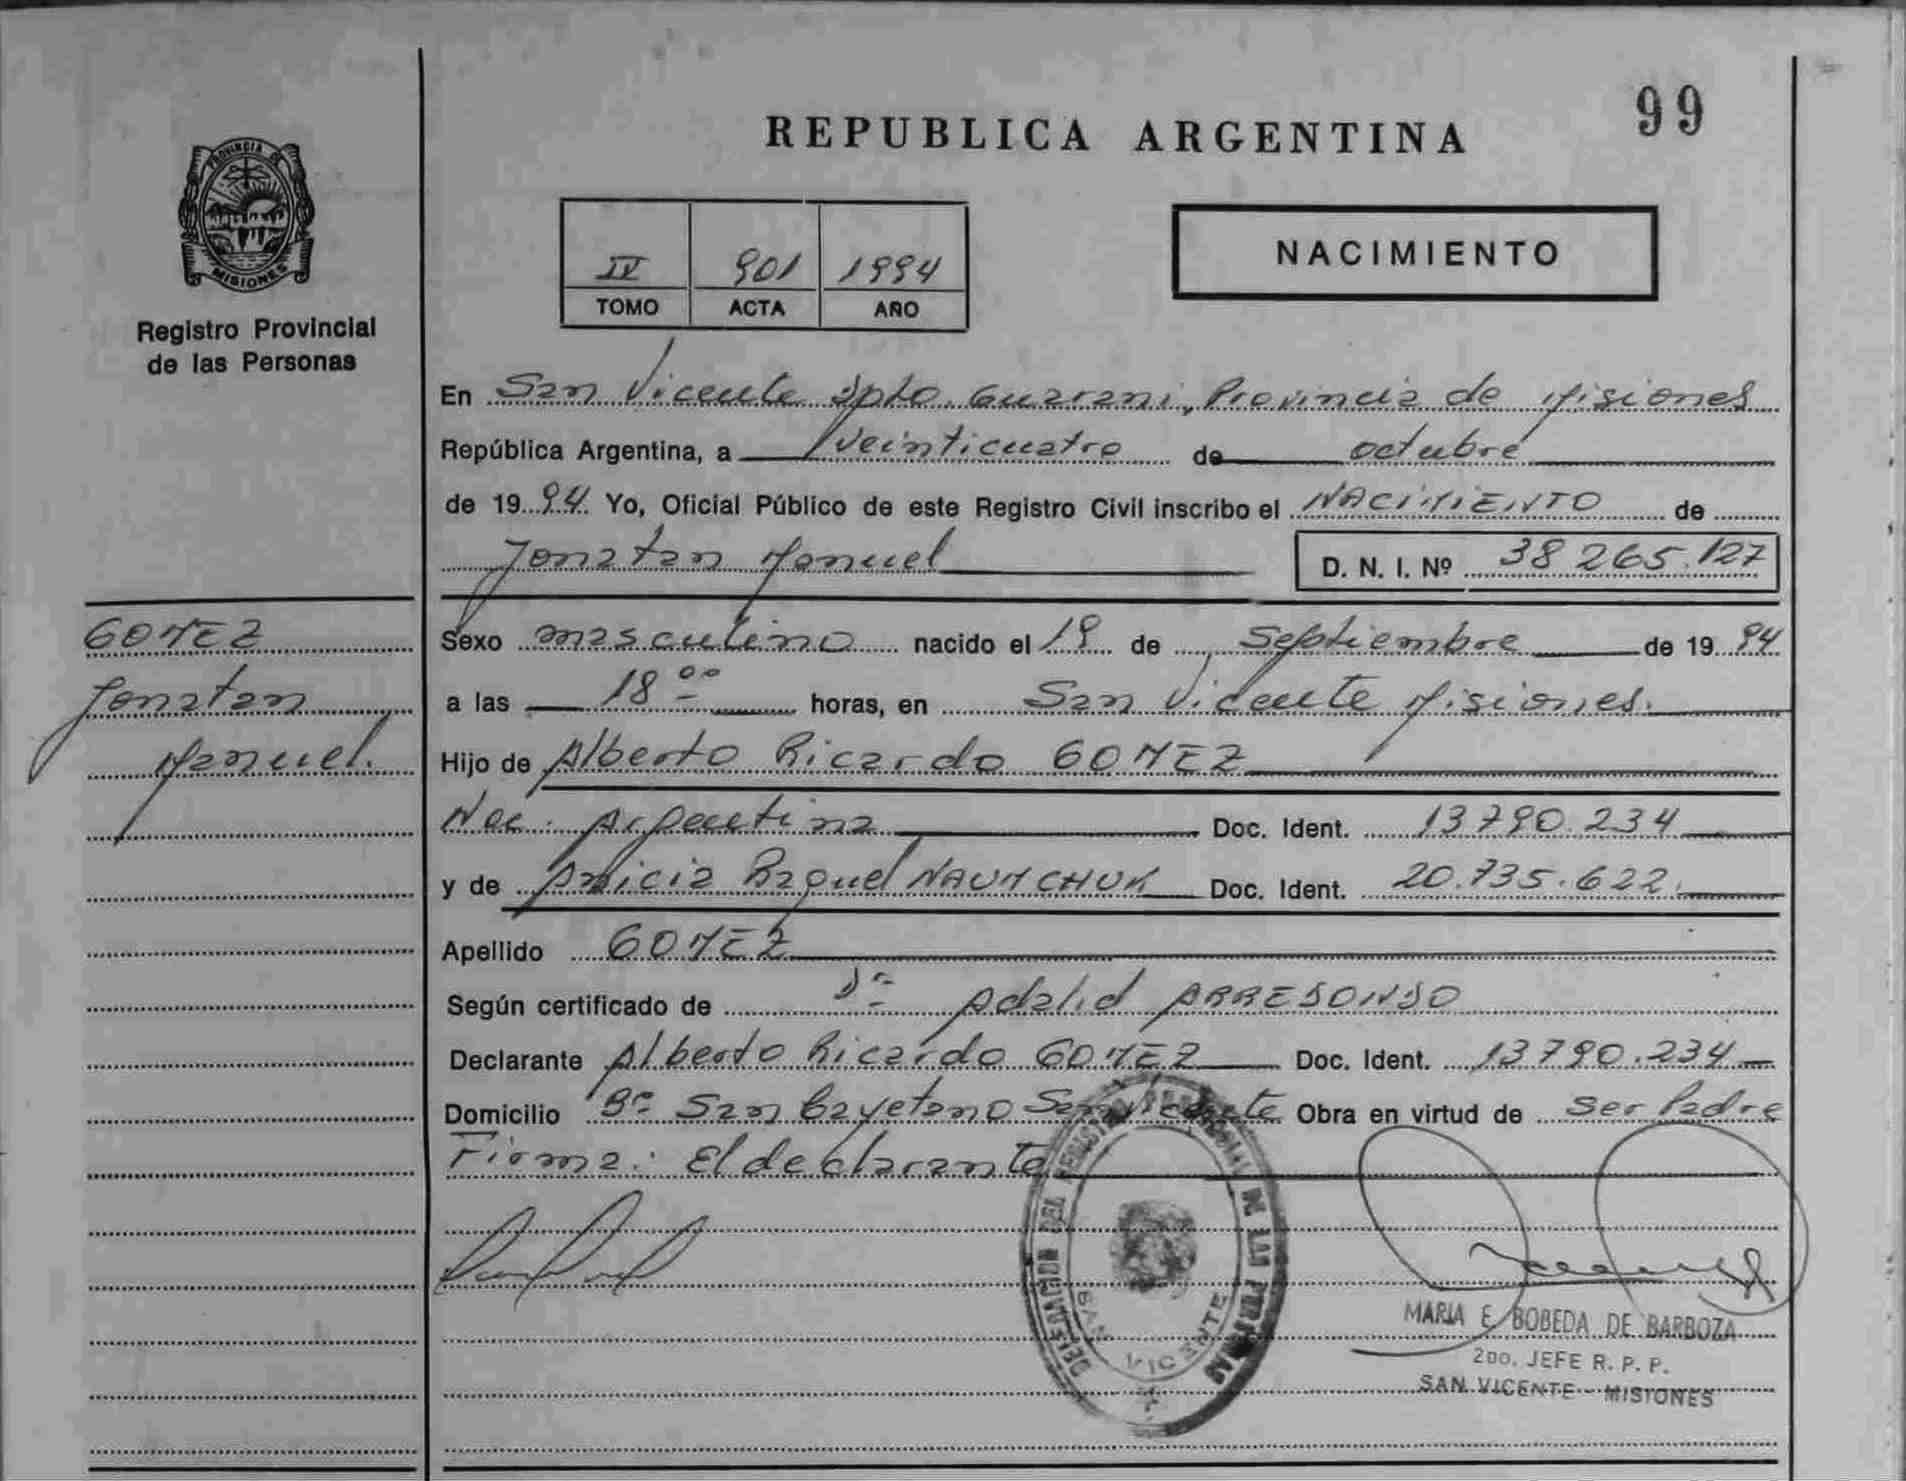 99
REPUBLICA ARGENTINA
PROVINCIA DE
MISIONES
Registro Provincial
de las Personas
IV 901 1994
TOMO ACTA AÑO
NACIMIENTO
En San Vicente Dpto. Guarani, Provincia de Misiones
República Argentina, a veinticuatro de octubre
de 1994. Yo, Oficial Público de este Registro Civil inscribo el NACIMIENTO de
Jonatan Manuel D. N. I. Nº 38 265.127
GOMEZ
Jonatan
Manuel.
Sexo masculino nacido el 19 de Septiembre de 1994
a las 18 ºº horas, en San Vicente Misiones.
Hijo de Alberto Ricardo GOMEZ
Nac. Argentina Doc. Ident. 13790.234
y de Raquel NAUMCHUK Doc. Ident. 20.735.622.
Apellido GOMEZ
Según certificado de Dr. Adalid
Declarante Alberto Ricardo GOMEZ Doc. Ident. 13790.234
Domicilio Bº San Cayetano San Vicente Obra en virtud de ser Padre
Firma: El declarante
DELEGACION DEL REGISTRO PROVINCIAL DE LAS PERSONAS
SAN VICENTE
MARIA E. BOBEDA DE BARBOZA
2DO. JEFE R. P. P.
SAN VICENTE - MISIONES